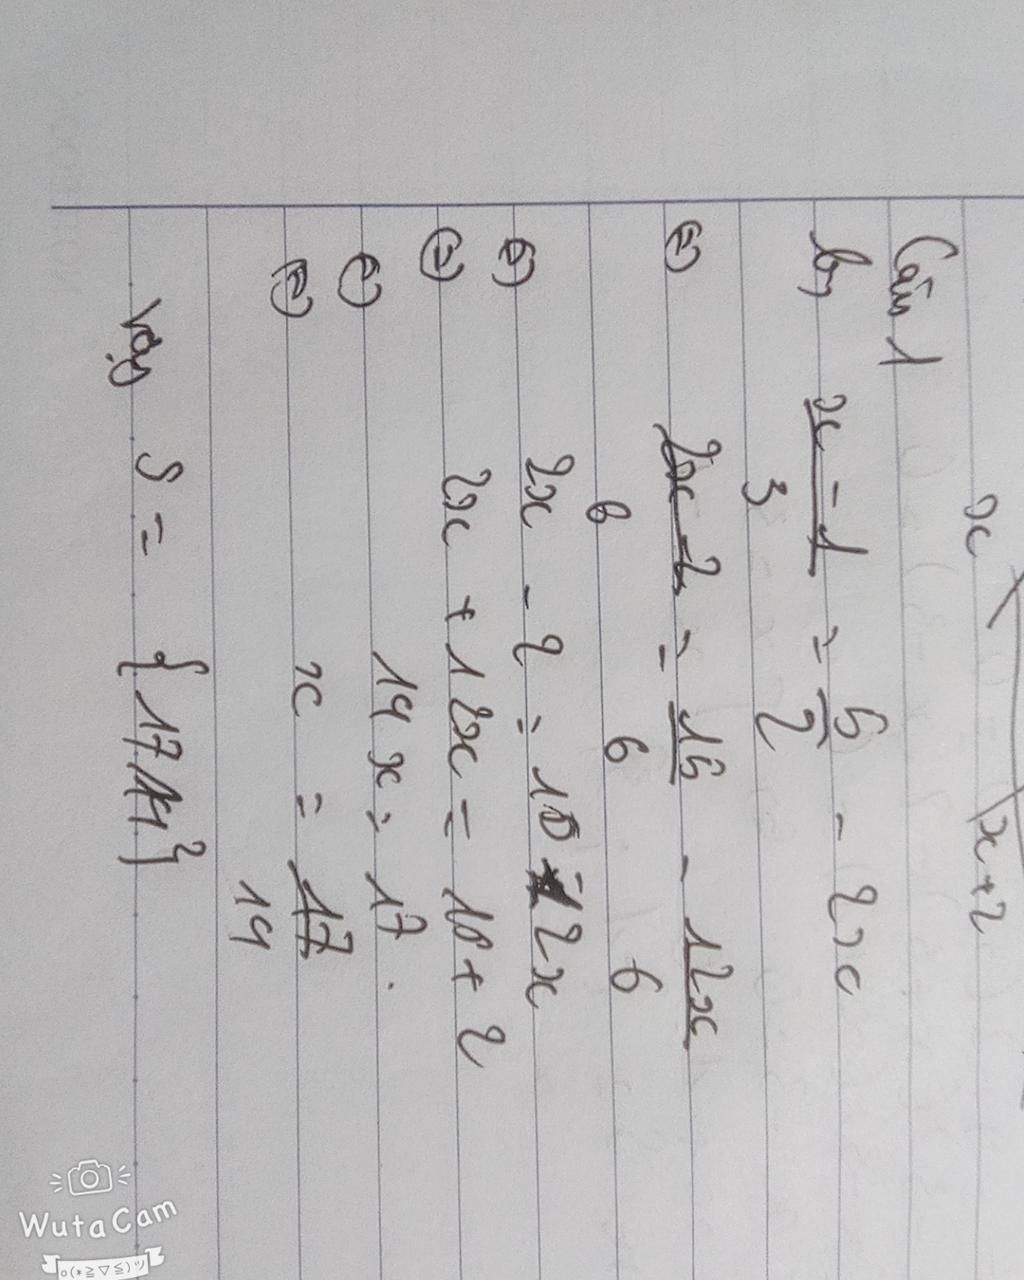 x x+2
Câu 1
b, x - 1 = 5 - 2x
3 2
⇔ 2x - 2 = 15 - 12x
6 6 6
⇔ 2x - 2 = 15 - 12x
⇔ 2x + 12x = 15 + 2
⇔ 14x = 17.
⇔ x = 17
14
Vậy S = {17/14}
WutaCam
o(*≧▽≦)ツ